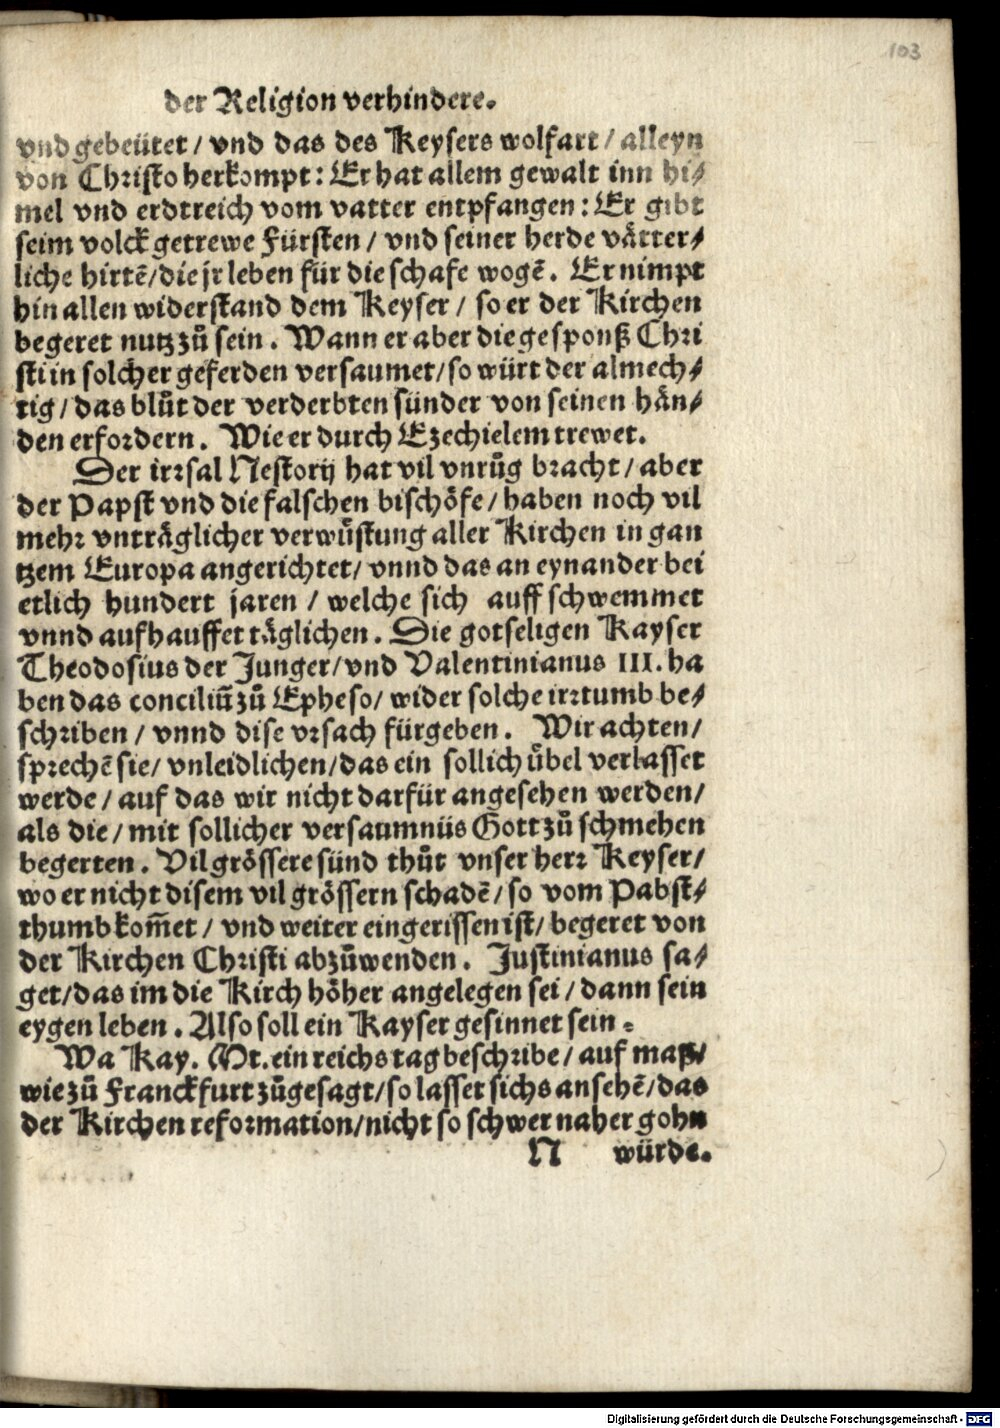 103
der Religion verhindere.
vnd gebeütet / vnd das des Keysers wolfart / alleyn
von Christo herkompt: Er hat allem gewalt inn hi⸗
mel vnd erdtreich vom vatter entpfangen: Er gibt
seim volck getrewe Fürsten / vnd seiner herde vätter⸗
liche hirtē/die jr leben für die schafe wogē. Er nimpt
hin allen widerstand dem Keyser / so er der Kirchen
begeret nutz zů sein. Wann er aber die gesponß Chri
sti in solcher geferden versaumet/so würt der almech⸗
tig/das blůt der verderbten sünder von seinen hän⸗
den erfordern. Wie er durch Ezechielem trewet.
Der irrsal Nestorij hat vil vnrůg bracht/aber
der Papst vnd die falschen bischöfe/haben noch vil
mehr vnträglicher verwůstung aller Kirchen in gan
tzem Europa angerichtet/ vnnd das an eynander bei
etlich hundert jaren / welche sich auff schwemmet
vnnd aufhauffet täglichen. Die gotseligen Kayser
Theodosius der Junger/vnd Valentinianus III. ha
ben das conciliū zů Epheso/ wider solche irrtumb be⸗
schriben / vnnd dise vrsach fürgeben. Wir achten/
sprechē sie/ vnleidlichen/das ein sollich übel verlasset
werde/auf das wir nicht darfür angesehen werden/
als die/mit sollicher versaumnüs Gott zů schmehen
begerten. Vil grössere sünd thůt vnser herr Keyser/
wo er nicht disem vil grössern schadē/so vom Pabst⸗
thumb kom̄et / vnd weiter eingerissen ist/begeret von
der Kirchen Christi abzůwenden. Justinianus sa⸗
get/das im die Kirch höher angelegen sei/dann sein
eygen leben. Also soll ein Kayser gesinnet sein.
Wa Kay. Mt. ein reichstag beschribe/auf maß/
wie zů Franckfurt zůgesagt/so lasset sichs ansehē/das
der Kirchen reformation/nicht so schwer naher gohn
N würde.
Digitalisierung gefördert durch die Deutsche Forschungsgemeinschaft - DFG